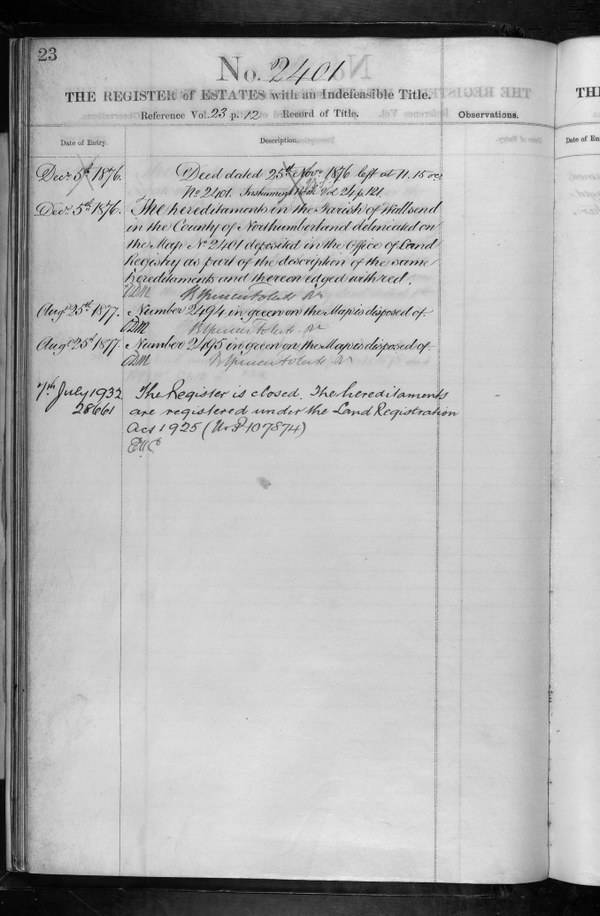 23
No. 2401
THE REGISTER of ESTATES with an Indefeasible Title.
Reference Vol. 23 p. 12 Record of Title.
Observations.
Date of Entry.
Description.
Decr. 5th 1876.
Deed dated 25th Novr 1876 left at 11.15 o'c
No 2401. Instrument Book Vol. 24 p. 121
Decr. 5th 1876.
The hereditaments in the Parish of Wallsend
in the County of Northumberland delineated on
the Map No 2401 deposited in the Office of Land
Registry as part of the description of the same
hereditaments and thereon edged with red.
Augt 25th 1877.
Number 2494 in green on the Map is disposed of.
Augt 25th 1877
Number 2495 in green on the Map is disposed of.
7th July 1932
28661
The Register is closed. The hereditaments
are registered under the Land Registration
Act 1925 (No P107874)
THE
Date of En